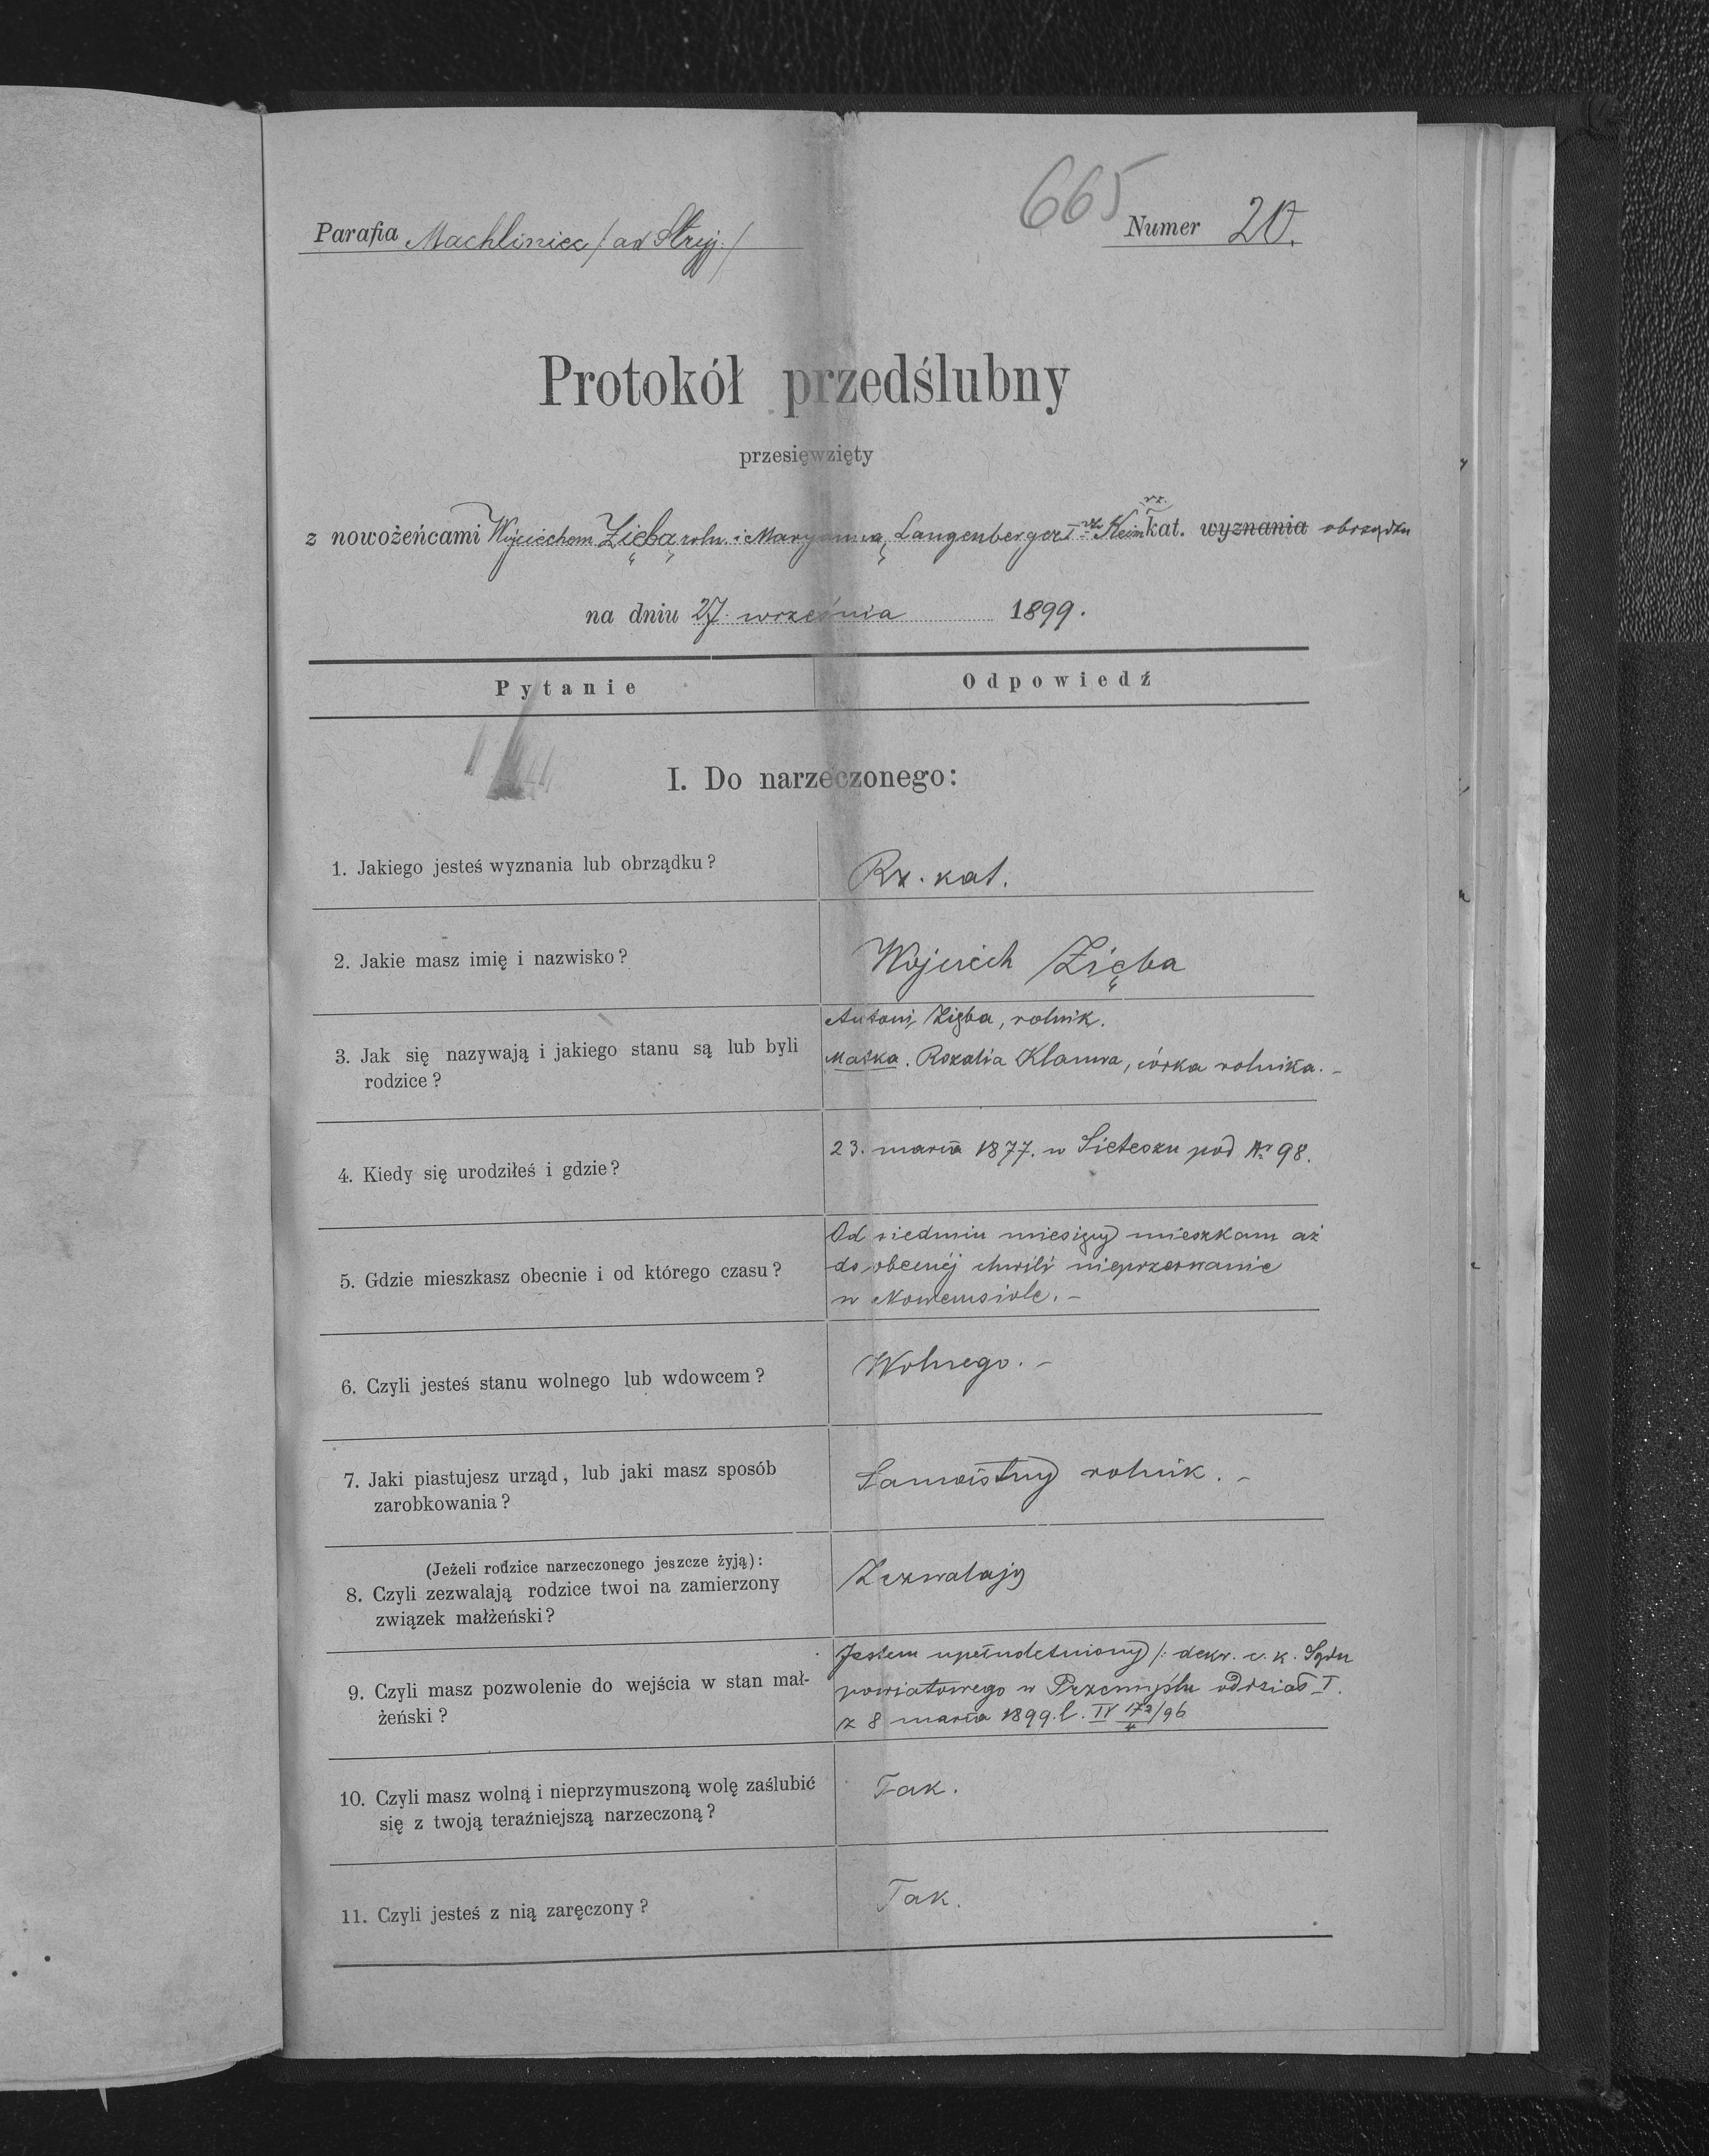 665
Parafia Machliniec /ad Stryj./ Numer 20.
Protokół przedślubny
przesięwzięty
rz.
z nowożeńcami Wojciechem Ziębą roln. i Maryanną Langenberger I vto Keim kat. wyznania obrządku
na dniu 27. września 1899.
Pytanie Odpowiedź
I. Do narzeczonego:
1. Jakiego jesteś wyznania lub obrządku? Rz. kat.
2. Jakie masz imię i nazwisko? Wojciech Zięba
Antoni Zięba, rolnik.
3. Jak się nazywają i jakiego stanu są lub byli Matka. Rozalia Klamra, córka rolnika. -
rodzice?
23. marca 1877. w Sieteszu pod Nr 98.
4. Kiedy się urodziłeś i gdzie?
Od siedmiu miesięcy mieszkam aż
5. Gdzie mieszkasz obecnie i od którego czasu? do obecnéj chwili nieprzerwanie
w Nowemsiole. -
6. Czyli jesteś stanu wolnego lub wdowcem? Wolnego. -
7. Jaki piastujesz urząd, lub jaki masz sposób Samoistny rolnik. -
zarobkowania?
(Jeżeli rodzice narzeczonego jeszcze żyją):
8. Czyli zezwalają rodzice twoi na zamierzony Zezwalają
związek małżeński?
Jestem upełnoletniony /: dekr. c. k. Sądu
9. Czyli masz pozwolenie do wejścia w stan mał- powiatowego w Przemyślu oddział I.
żeński? z 8 marca 1899. l. IV
10. Czyli masz wolną i nieprzymuszoną wolę zaślubić Tak.
się z twoją teraźniejszą narzeczoną?
11. Czyli jesteś z nią zaręczony? Tak.